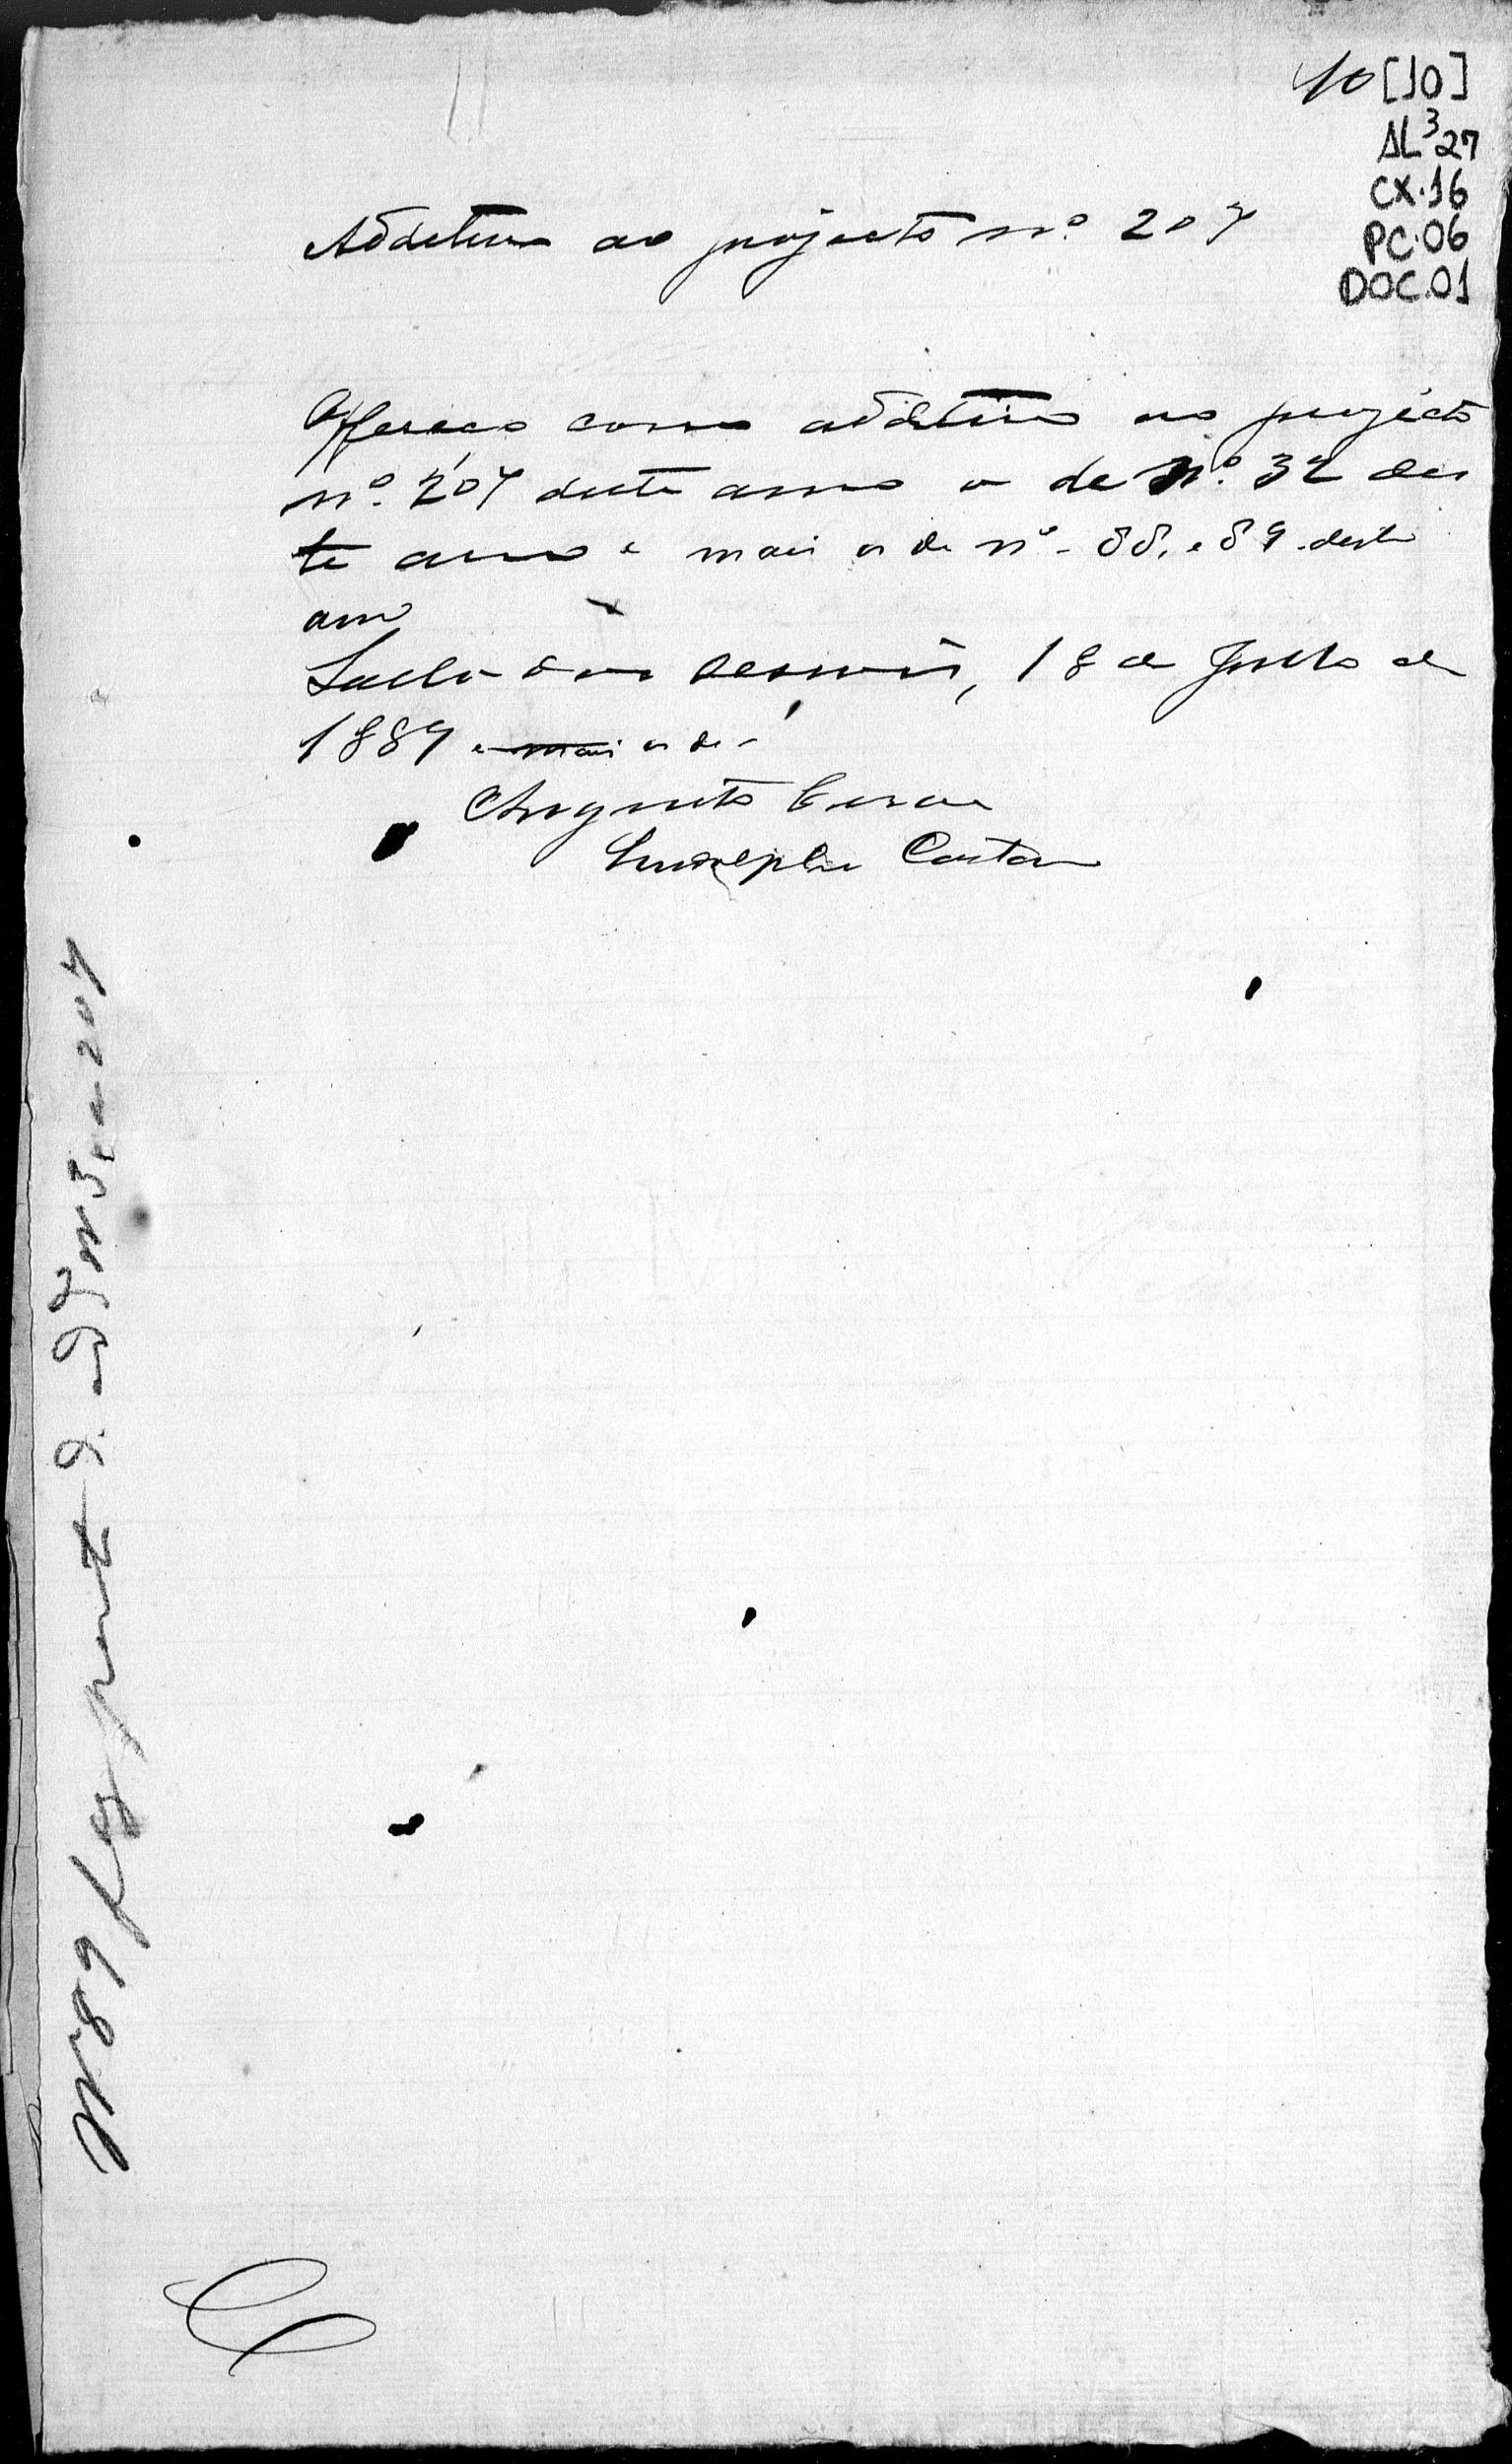 10 [10]
AL³27
CX.16
PC.06
DOC.01
Additivo ao projecto nº 207
Offereço como additivo ao projecto
nº 207 deste anno o de nº 32 des
te anno e mais os de nº - 88, e 89 deste
anno
Salla das sessões, 18 de Julho de
1889 e mais os de
Augusto
Lindolpho Caetano
N 89
207